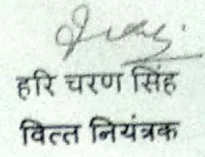 हरि चरण सिंह
वित्त नियंत्रक